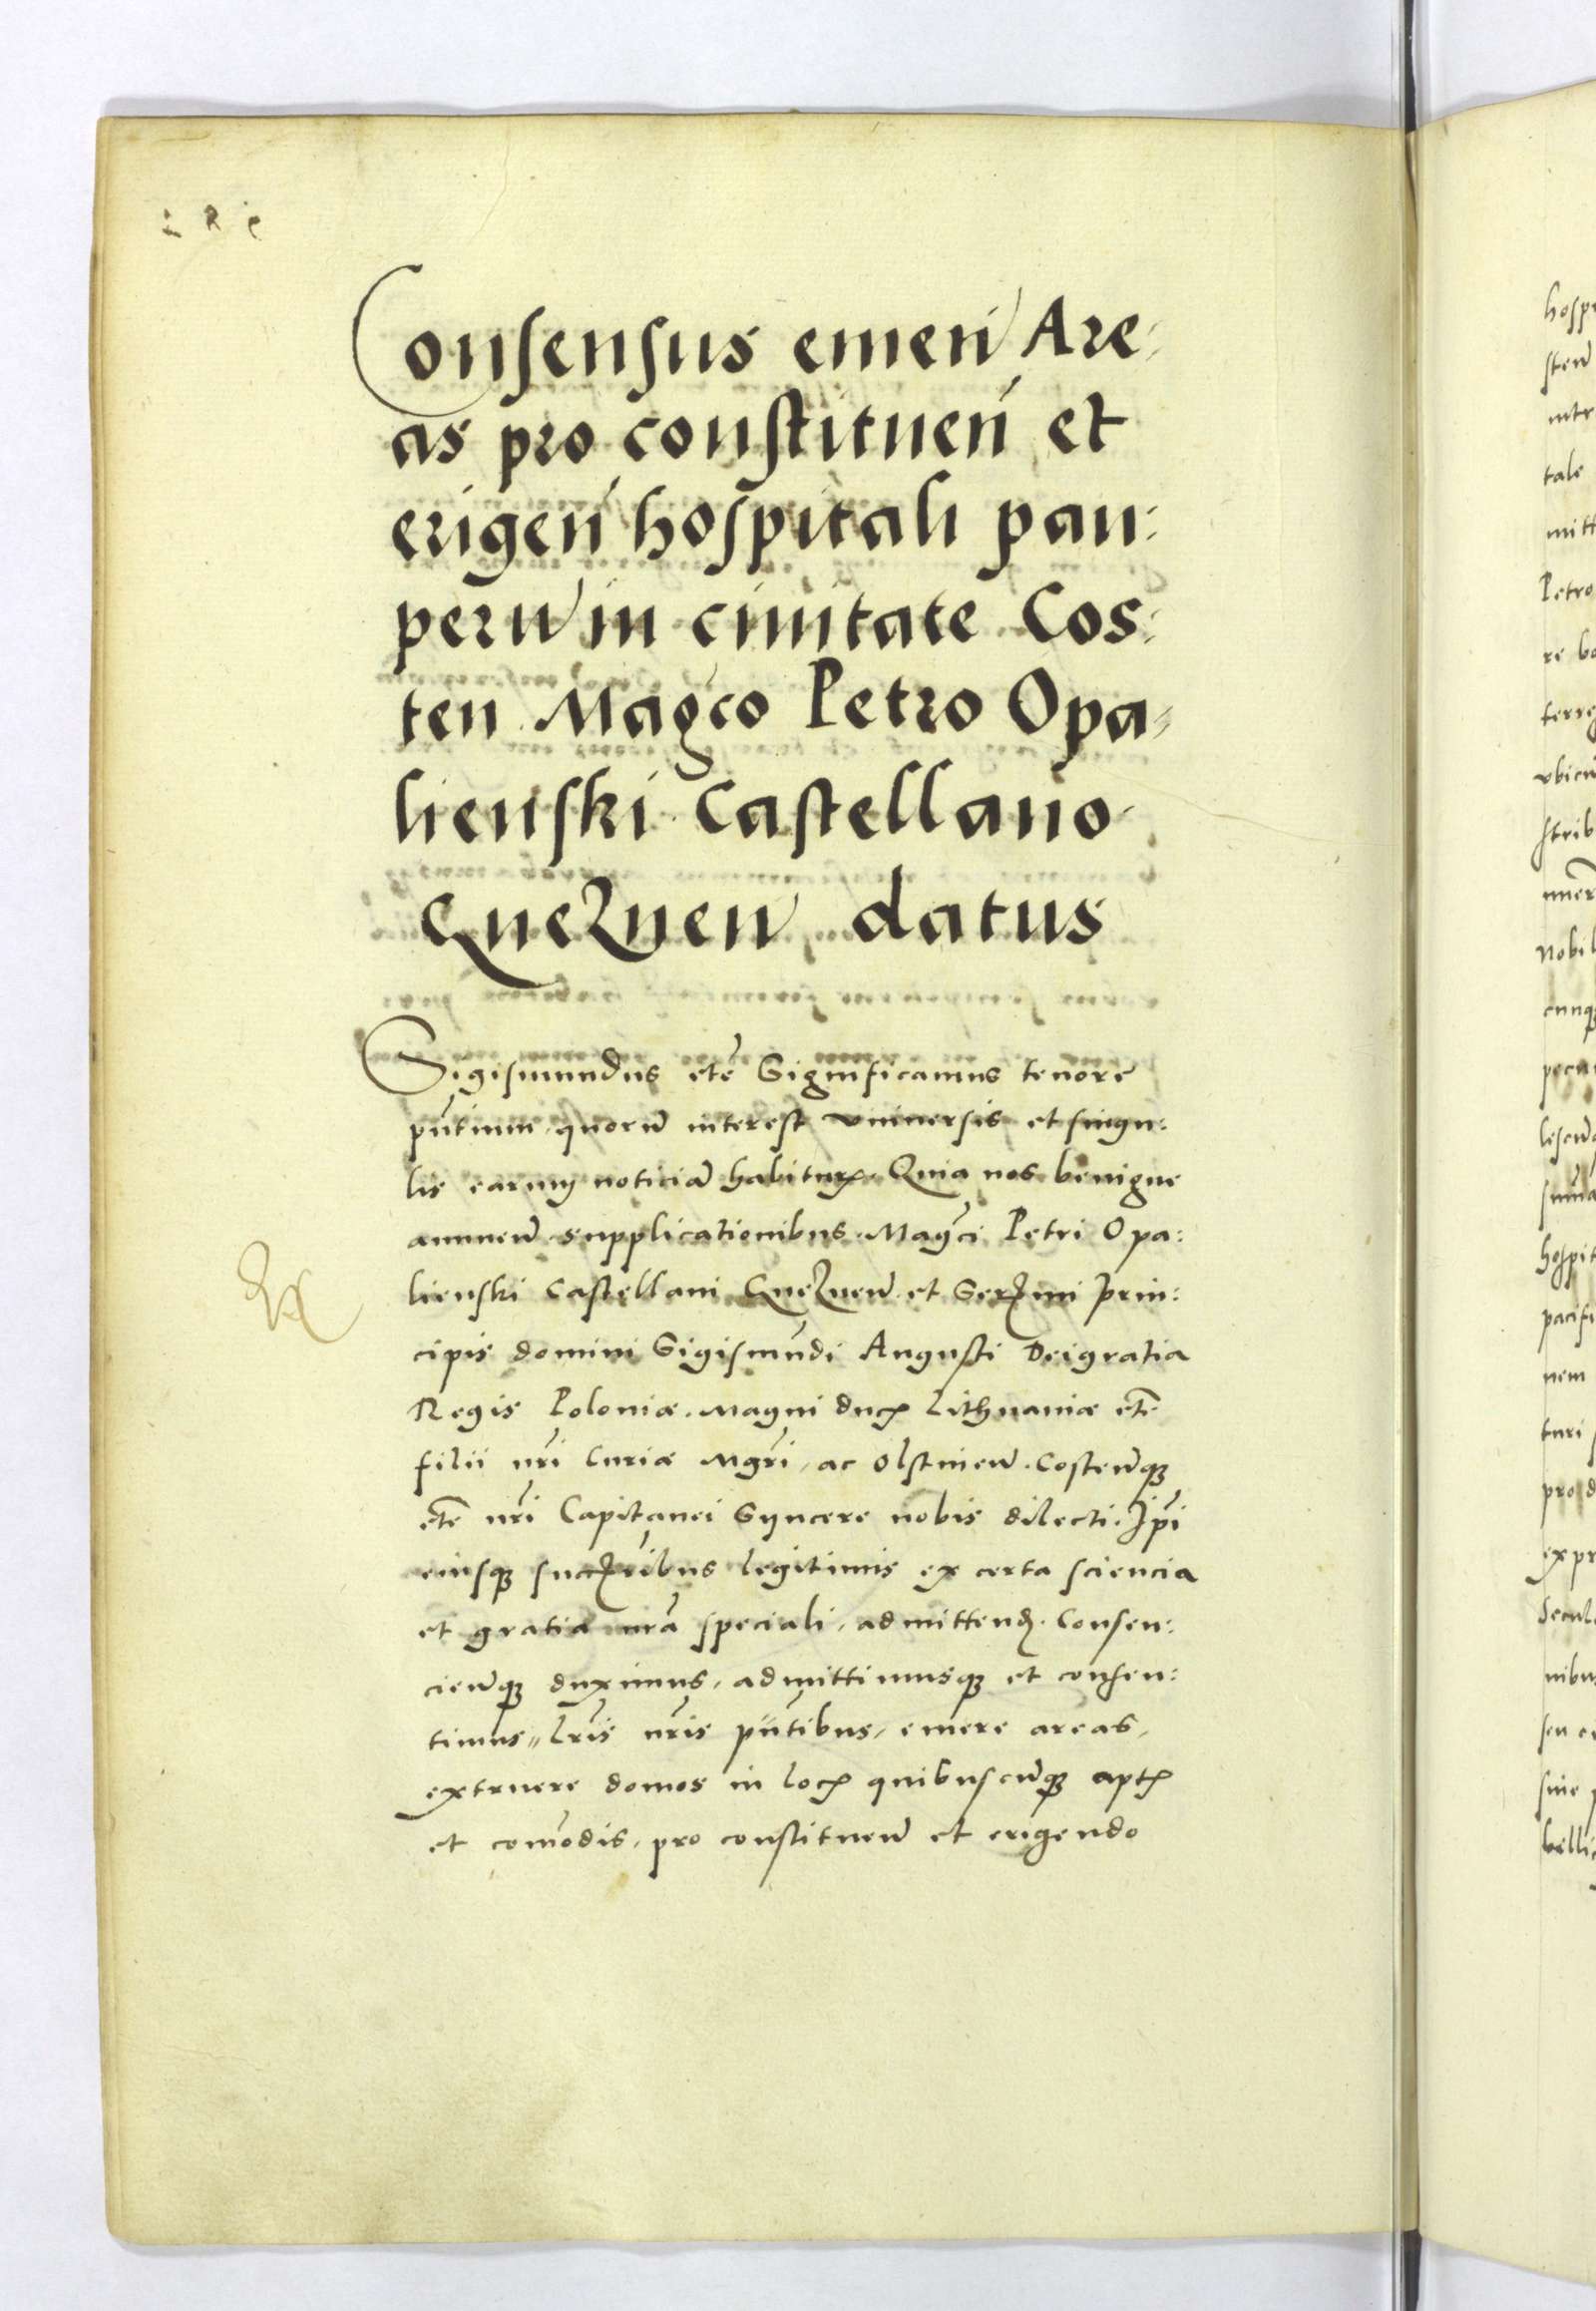 Consensus emen Are-
as pro constituen et
erigen hospitali pau:
peru in ciuitate Cos:
ten Magco Petro Opa-
lienski Castellano
Gneznen datus
Sigismundus etc Significamus tenore
pñtium, quorũ interest vniuersis et singu:
lis earum noticiã habituris. Quia nos benigne
annuen supplicationibus Magci Petri Opa:
lienski Castellani Gneznen et Sermi Prin:
cipis domini Sigismũdi Augusti Dei gratia
Regis Poloniæ Magni ducis Lithuaniæ etc
filii nri Curiæ Mgri, ac Olstinen Costenq3
etc nri Capitanei Syncere nobis dilecti. Ipi
eiusq3 succribus legitimis ex certa sciencia
et gratia nra speciali, admittend. Consen:
cienq3 duximus, admittimusq3 et consen:
timus, lris nris pñtibus, emere areas,
extruere domos in locis quibuscũq3 aptis
et com̃odis, pro constituen et erigendo
hosp
sten
intr
tale
mitt
Petro
re bo
terre
vbicu
strib
nobil
pecu
hospit
pacifi
nem
turi
pro d
ex pr
secul
nibus
sine
belli